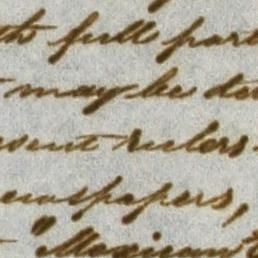 full part
may be de
sent rulers.
ewspapers,
"Mexican